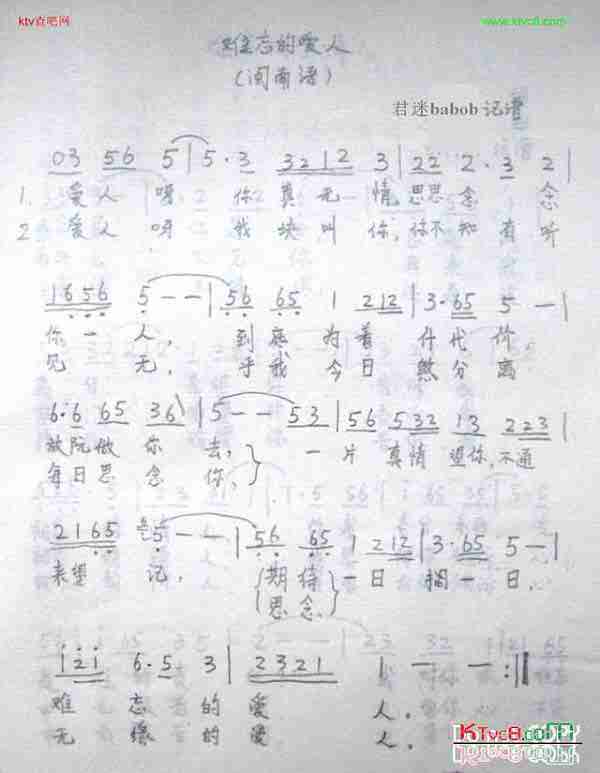 ktv査吧网
www.ktvc8.com
难忘的爱人
(闽南语)
君迷babob记谱
03 56 5 | 5· 3 32 12 3 | 22 2· 3 2 |
1. 爱人呀 你真无情,思思念念
2. 爱人呀 我块叫你,你不知有听
1656 5 - - | 56 65 1 212 | 3· 65 5 - |
你一人, 到底为着什代价
见无, 乎我今日煞分离
6·6 65 36 | 5 - - 53 | 56 532 13 223 |
放阮做你去, 一片真情望你,不通
每日思念你,
2165 5 - - | 56 65 1 212 | 3· 65 5 - |
来望记, 期待一日搁一日,
思念
121 6·5 3 | 2321 1 - - :||
难忘的爱人.
无缘的爱人.
KTvc8.com